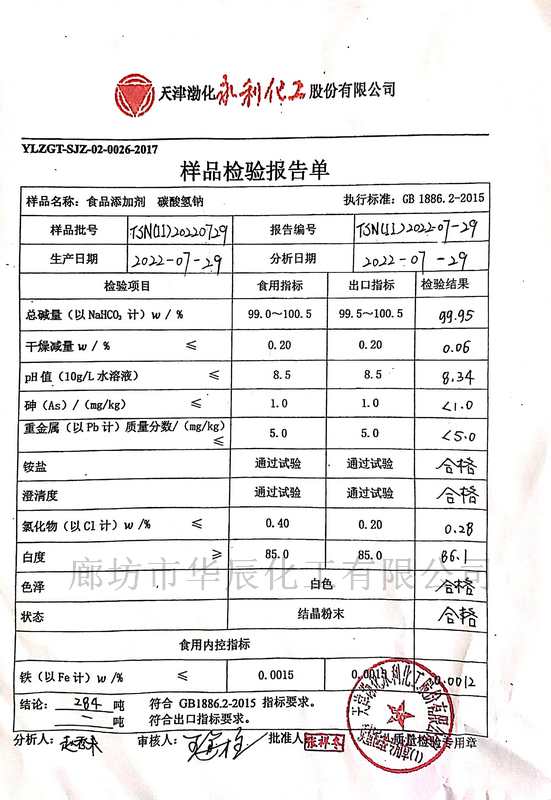 天津渤化永利化工股份有限公司
YLZGT-SJZ-02-0026-2017
样品检验报告单
样品名称：食品添加剂 碳酸氢钠 执行标准：GB 1886.2-2015
样品批号 TSN(11)20220729 报告编号 TSN(11)2022-07-29
生产日期 2022-07-29 分析日期 2022-07-29
检验项目 食用指标 出口指标 检验结果
总碱量（以 NaHCO₃ 计）w / % 99.0～100.5 99.5～100.5 99.95
干燥减量 w / % ≤ 0.20 0.20 0.06
pH 值（10g/L 水溶液） ≤ 8.5 8.5 8.34
砷（As）/（mg/kg） ≤ 1.0 1.0 <1.0
重金属（以 Pb 计）质量分数/（mg/kg） ≤ 5.0 5.0 <5.0
铵盐 通过试验 通过试验 合格
澄清度 通过试验 通过试验 合格
氯化物（以 Cl 计）w /% ≤ 0.40 0.20 0.28
白度 ≥ 85.0 85.0 86.1
廊坊市华辰化工有限公司
色泽 白色 合格
状态 结晶粉末 合格
食用内控指标
铁（以 Fe 计）w /% ≤ 0.0015 0.0015 0.0012
结论： 284 吨 符合 GB1886.2-2015 指标要求。
— 吨 符合出口指标要求。
分析人： 审核人： 批准人： 质量检验专用章